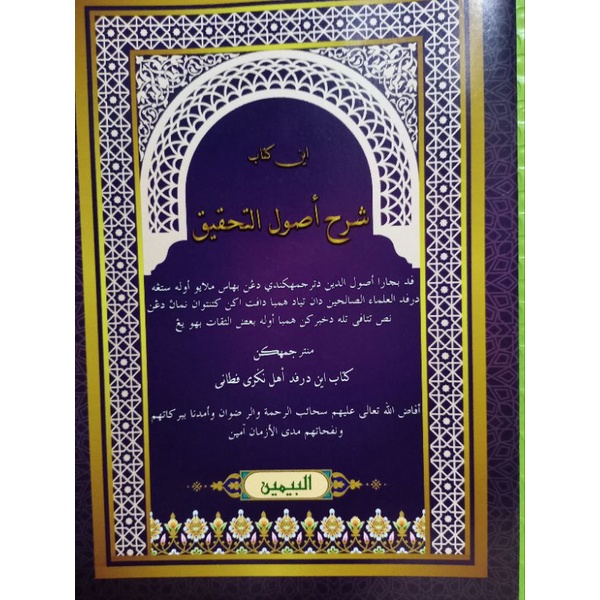 اين كتاب
شرح أصول التحقيق
قد بچارا أصول الدين دترجمهكندي دغن بهاس ملايو أوله ستڠه
درفد العلماء الصالحين دان تياد همبا دافت اكن كتنتوان نمان دغن
نص تتافى تله دخبركن همبا أوله بعض الثقات بهو يڠ
منترجمهكن
كتاب اين درفد أهل نكرى فطانى
أفاض الله تعالى عليهم سحائب الرحمة والرضوان وأمدنا ببركاتهم
ونفحاتهم مدى الأزمان آمين
البيمين